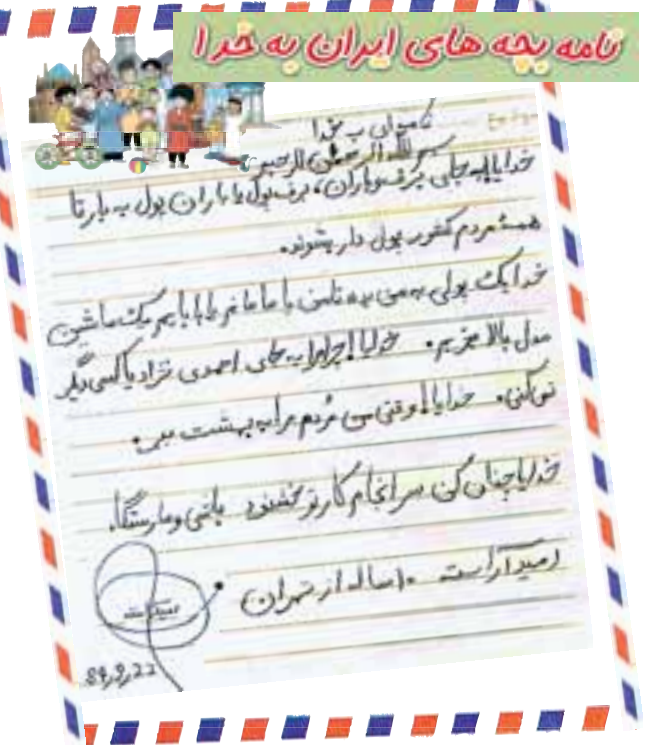 نامه بچه های ایران به خدا
نامه‌ای به خدا
بسم الله الرحمن الرحیم
خدایا! به جای برف و باران، برف پول یا باران پول به بار تا
همهٔ مردم کشور پول دار بشوند.
خدا یک پولی به من بده تا من با مامانم یا بابایم یک ماشین
مدل بالا بخریم. خدایا! چرا به جای احمدی نژاد یا کسی دیگر
نمی‌کنی. خدایا! وقتی من مُردم مرا به بهشت ببر.
خدایا چنان کن سرانجام کار تو خشنود باشی و ما رستگار.
امید آراسته ۱۰ ساله از تهران